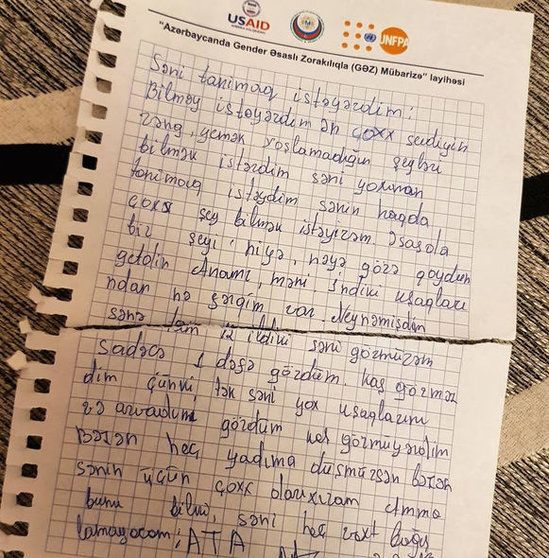 USAID
UNFPA
"Azərbaycanda Gender Əsaslı Zorakılıqla (GƏZ) Mübarizə" layihəsi
Səni tanimaq istəyərdim:
Bilməy istəyərdim ən çoxx sevdiyin
rəng, yemək xoşlamadığın şeyləri
bilmək istərdim səni yaxınnan
tanimaq istəydim sənin haqda
çoxx şey bilmək istəyirəm. Əsas ola
bir şeyi, niyə, nəyə görə qoydun
getdin Anami, məni İndiki uşaqları
ndan nə fərqim var Neynəmişdim
sənə tam 12 ildiki səni görmürəm
Sadəcə 1 dəfə gördüm. Kaş görməz
dim çünki tək səni yox uşaqlarını
və arvadını gördüm kaş görmüyəydim
Bəzən heç yadıma düşmürsən bəzən
sənin üçün çoxx darıxıram Amma
bunu bilki, səni heç vaxt bağış
lamayacam; ATA